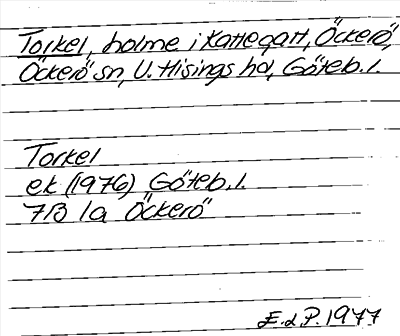 Torkel, holme i Kattegatt, Öckerö,
Öckerö sn, V. Hisings hd, Göteb. l.
Torkel
ek (1976) Göteb. l.
7B 1a Öckerö
E. d. P. 1977